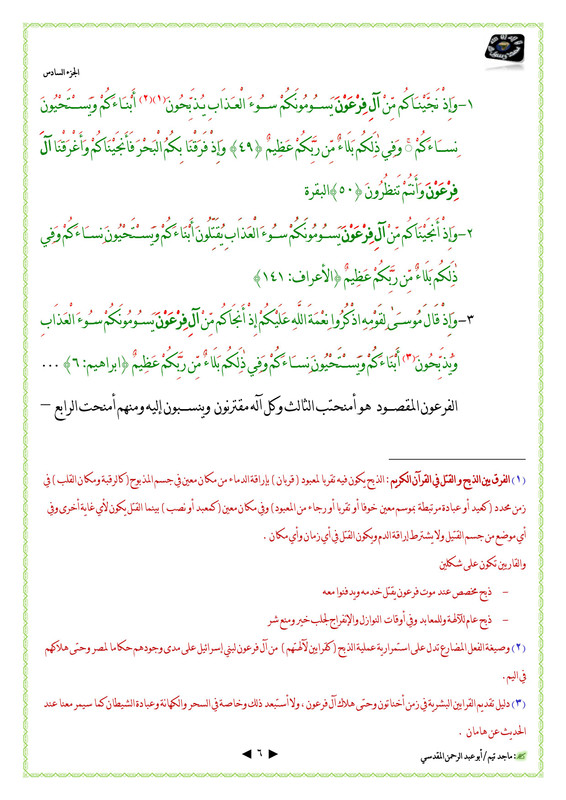 الجزء السادس
١-وَإِذْ نَجَّيْنَاكُم مِّنْ آلِ فِرْعَوْنَ يَسُومُونَكُمْ سُوءَ الْعَذَابِ يُذَبِّحُونَ(١)(٢) أَبْنَاءَكُمْ وَيَسْتَحْيُونَ
نِسَاءَكُمْ ۚ وَفِي ذَٰلِكُم بَلَاءٌ مِّن رَّبِّكُمْ عَظِيمٌ ﴿٤٩﴾ وَإِذْ فَرَقْنَا بِكُمُ الْبَحْرَ فَأَنجَيْنَاكُمْ وَأَغْرَقْنَا آلَ
فِرْعَوْنَ وَأَنتُمْ تَنظُرُونَ ﴿٥٠﴾ البقرة
٢-وَإِذْ أَنجَيْنَاكُم مِّنْ آلِ فِرْعَوْنَ يَسُومُونَكُمْ سُوءَ الْعَذَابِ يُقَتِّلُونَ أَبْنَاءَكُمْ وَيَسْتَحْيُونَ نِسَاءَكُمْ وَفِي
ذَٰلِكُم بَلَاءٌ مِّن رَّبِّكُمْ عَظِيمٌ ﴿الأعراف: ١٤١﴾
٣-وَإِذْ قَالَ مُوسَىٰ لِقَوْمِهِ اذْكُرُوا نِعْمَةَ اللَّهِ عَلَيْكُمْ إِذْ أَنجَاكُم مِّنْ آلِ فِرْعَوْنَ يَسُومُونَكُمْ سُوءَ الْعَذَابِ
وَيُذَبِّحُونَ(٣) أَبْنَاءَكُمْ وَيَسْتَحْيُونَ نِسَاءَكُمْ وَفِي ذَٰلِكُم بَلَاءٌ مِّن رَّبِّكُمْ عَظِيمٌ ﴿ابراهيم: ٦﴾ ...
الفرعون المقصود هو أمنحتب الثالث وكل آله مقترنون وينسبون إليه ومنهم أمنحت الرابع –
(١) الفرق بين الذبح و القتل في القرآن الكريم : الذبح يكون فيه تقربا لمعبود ( قربان ) بإراقة الدماء من مكان معين في جسم المذبوح (كالرقبة ومكان القلب ) في
زمن محدد (كعيد أو عبادة مرتبطة بموسم معين خوفا أو تقربا أو رجاء من المعبود) وفي مكان معين (كمعبد أو نصب ) بينما القتل يكون لأي غاية أخرى وفي
أي موضع من جسم القتيل ولا يشترط إراقة الدم ويكون القتل في أي زمان وأي مكان .
والقاربين تكون على شكلين
– ذبح مخصص عند موت فرعون يقتل خدمه ويدفنوا معه
– ذبح عام للآلهة وللمعابد وفي أوقات النوازل والإنفراج لجلب خير ومنع شر
(٢) وصيغة الفعل المضارع تدل على استمرارية عملية الذبح (كقرابين لآلهتهم ) من آل فرعون لبني إسرائيل على مدى وجودهم حكاما لمصر وحتى هلاكهم
في اليم .
(٣) دليل تقديم القرابين البشرية في زمن أخناتون وحتى هلاك آل فرعون ، ولا أستبعد ذلك وخاصة في السحر والكهانة وعبادة الشيطان كما سيمر معنا عند
الحديث عن هامان .
: ماجد تيم / أبو عبد الرحمن المقدسي
◀ ٦ ▶